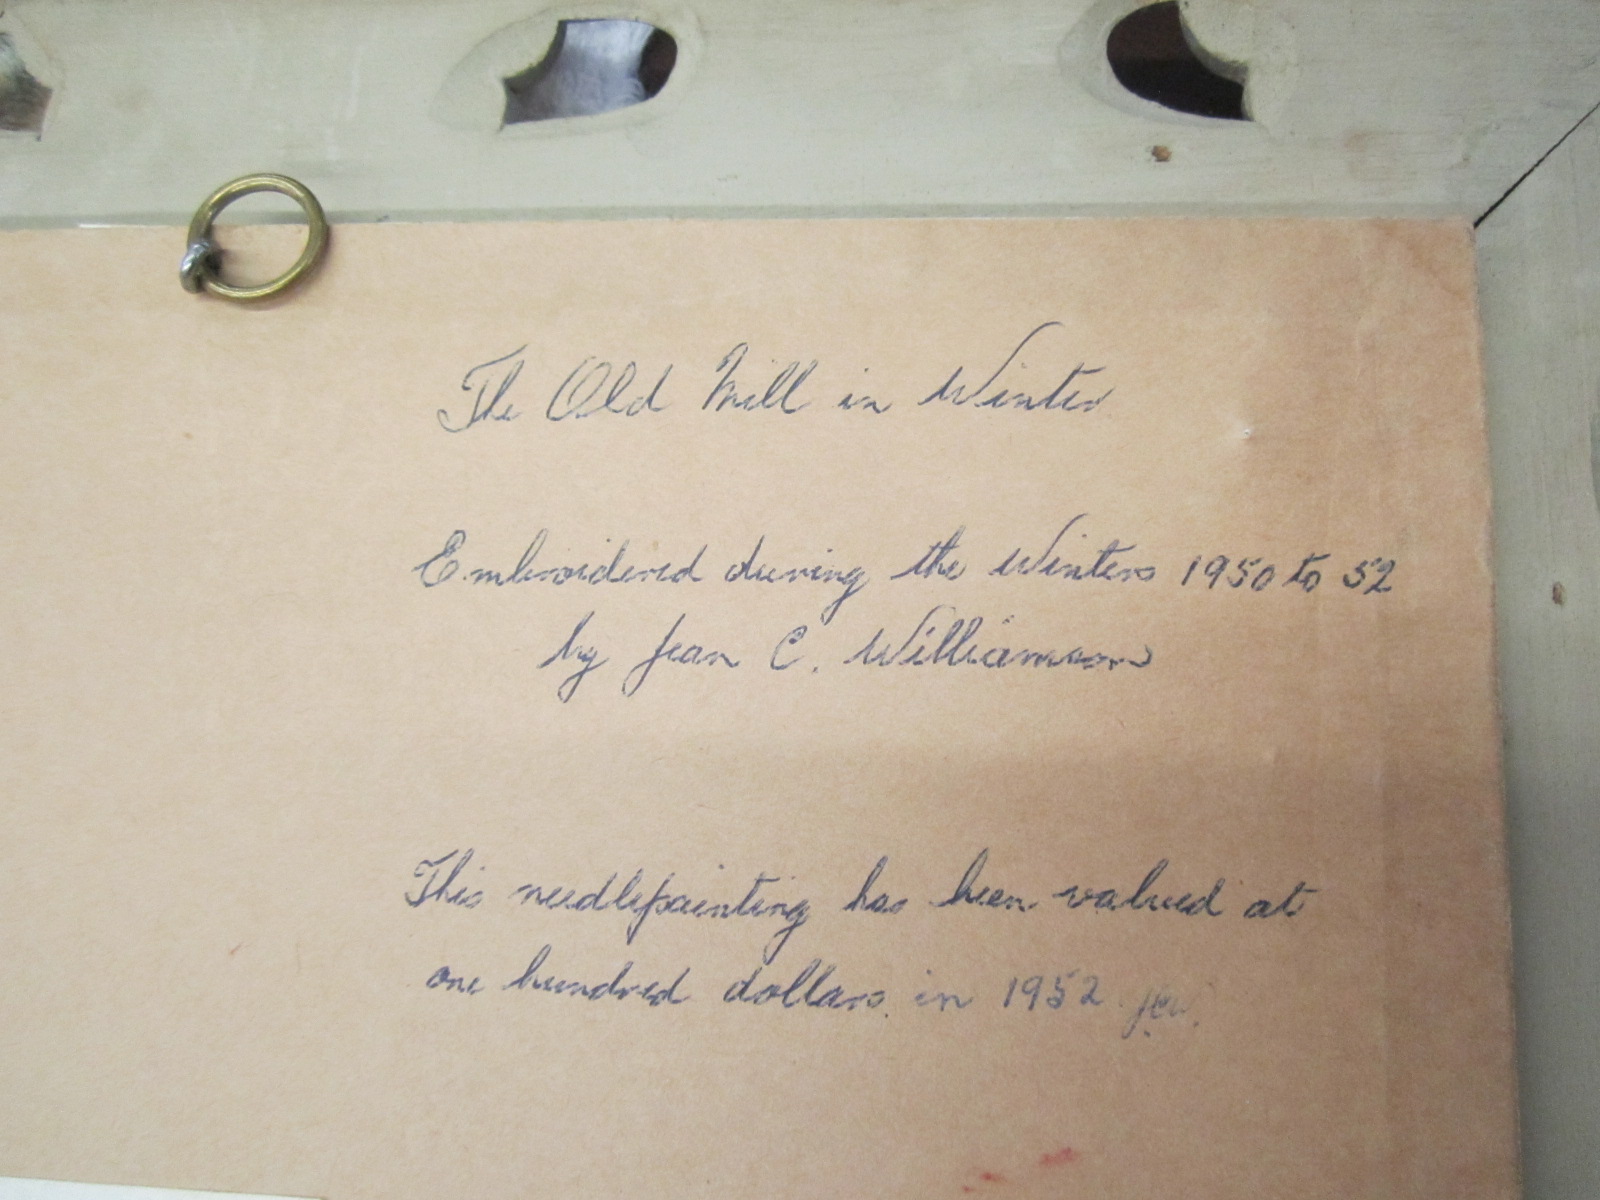 The Old Mill in Winter
Embroidered during the Winters 1950 to 52
by Jean C. Williamson
This needlepainting has been valued at
one hundred dollars. in 1952 JCW.